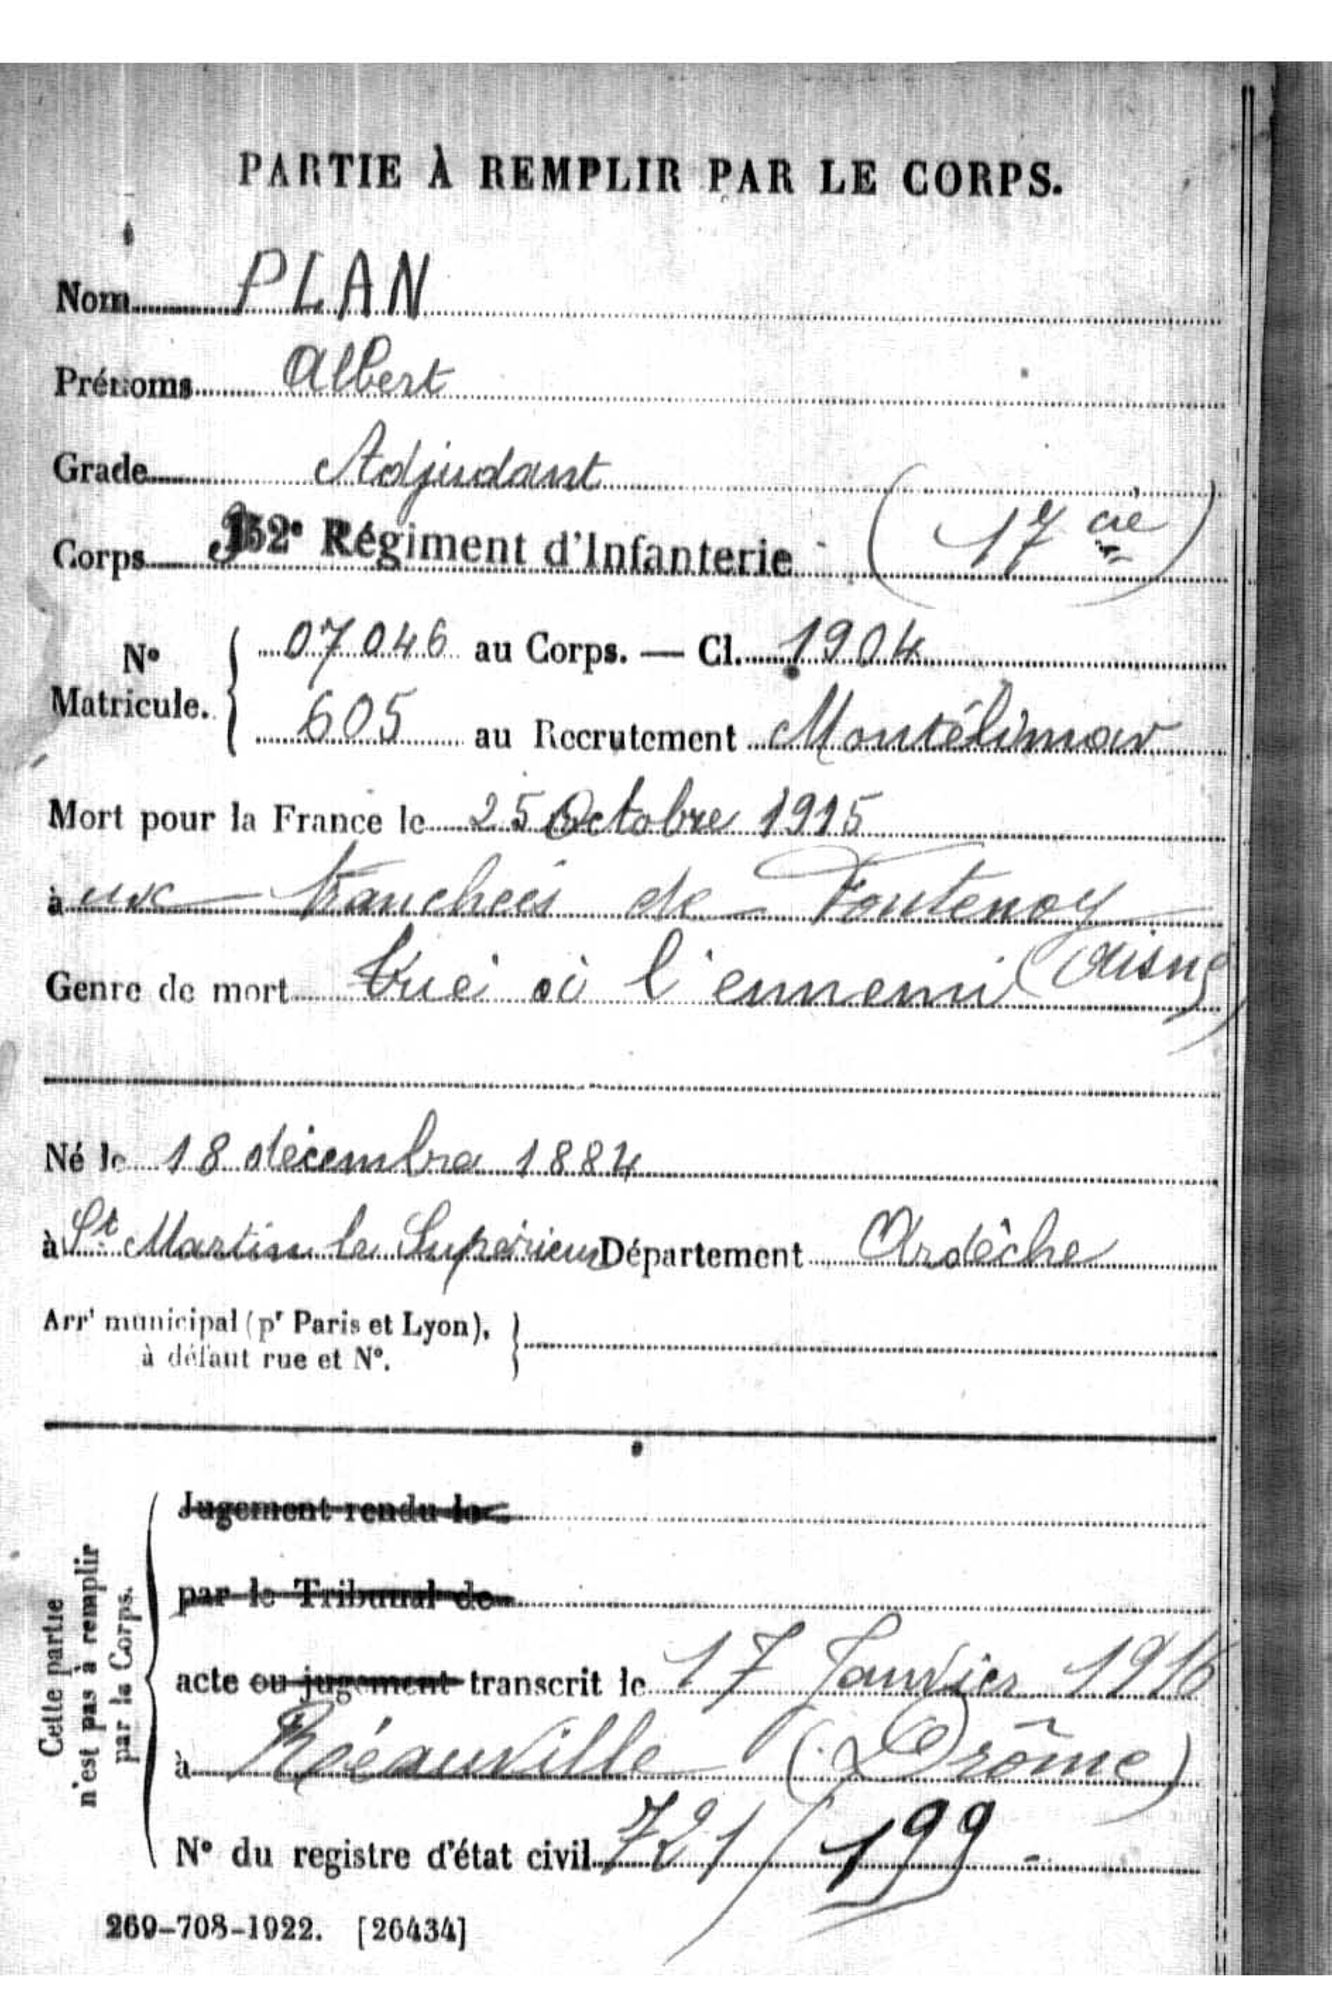 PARTIE À REMPLIR PAR LE CORPS.
Nom PLAN
Prénoms Albert
Grade Adjudant
Corps 352e Régiment d'Infanterie (17 cie)
No Matricule. { 07046 au Corps. — Cl. 1904
605 au Recrutement Montélimar
Mort pour la France le 25 Octobre 1915
à ux tranchées de Fontenoy
Genre de mort tué à l'ennemi (Aisne)
Né le 18 décembre 1884
à St Martin le Supérieur Département Ardèche
Arrt municipal (pr Paris et Lyon),
à défaut rue et No.
Cette partie
n'est pas à remplir
par le Corps.
Jugement rendu le
par le Tribunal de
acte ou jugement transcrit le 17 Janvier 1916
à Réauville (Drôme)
No du registre d'état civil 721/199
269-708-1922. [26434]